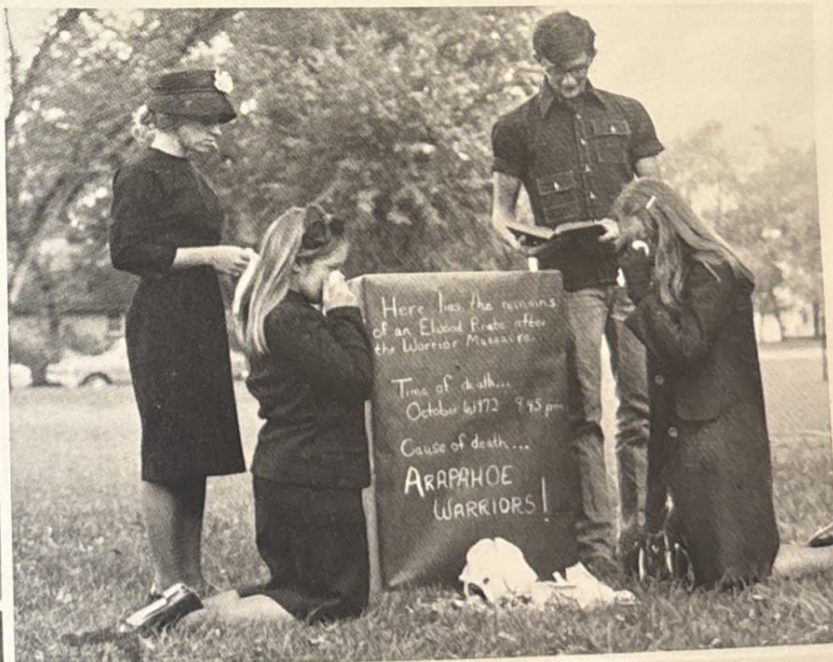 Here lies the remains
of an Elwood Pirate after
the Warrior Massacre.
Time of death...
October 6, 1972 9:45 pm
Cause of death...
ARAPAHOE
WARRIORS!